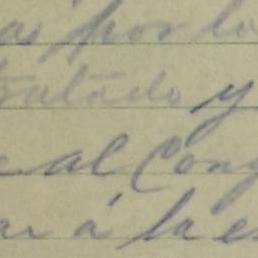 as por lo
tratado y
e al Cong
ar á la es